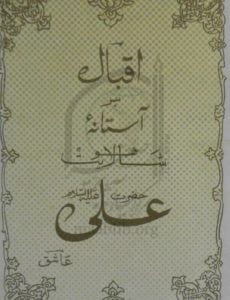 اقبال
بر
آستانۂ
شاہ لافتیٰ
حضرت علی علیہ السلام
عاشق